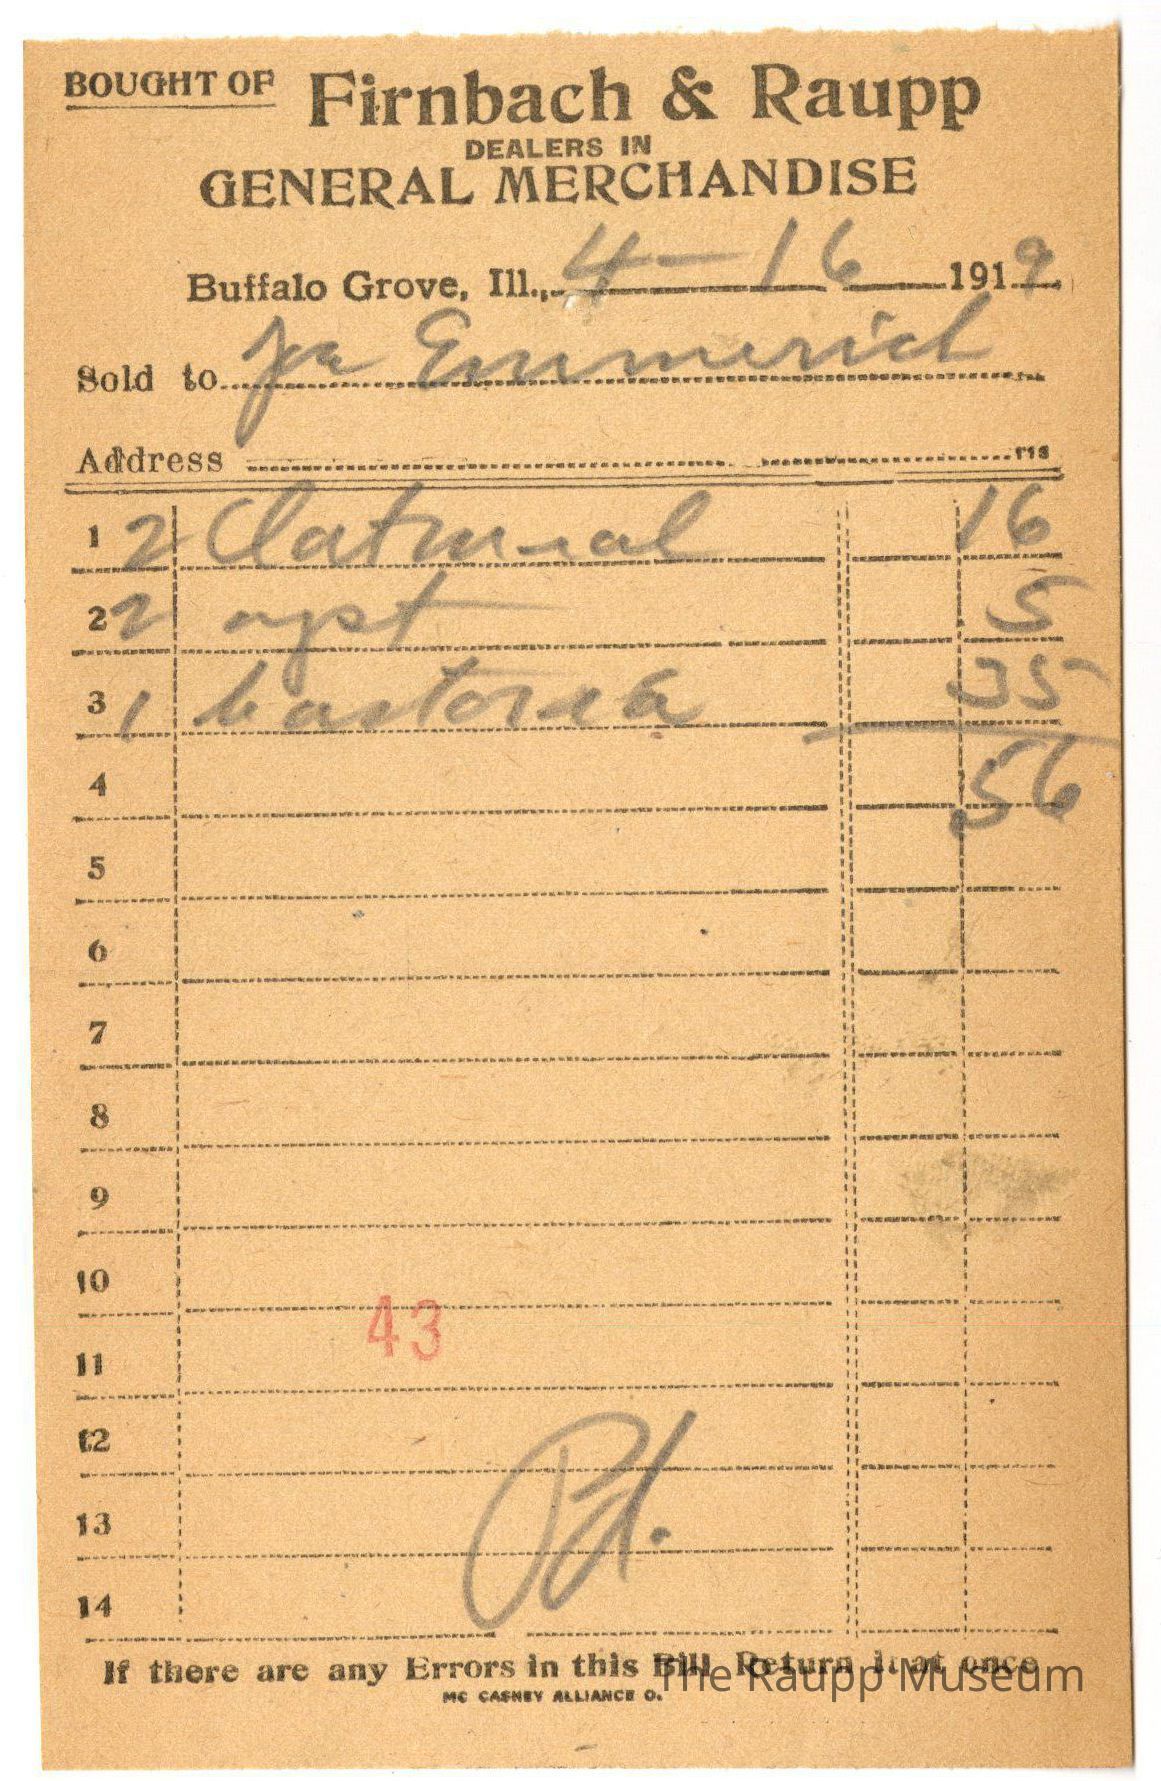 BOUGHT OF Firnbach & Raupp
DEALERS IN
GENERAL MERCHANDISE
Buffalo Grove, Ill., 4-16 1919
Sold to Ja Emmerich
Address
1 2 Oatmeal 16
2 2 yst 5
3 1 Castoria 35
4 56
5
6
7
8
9
10
43
11
12
13
Pd.
14
If there are any Errors in this Bill Return it at once
MC CASKEY ALLIANCE O.
The Raupp Museum